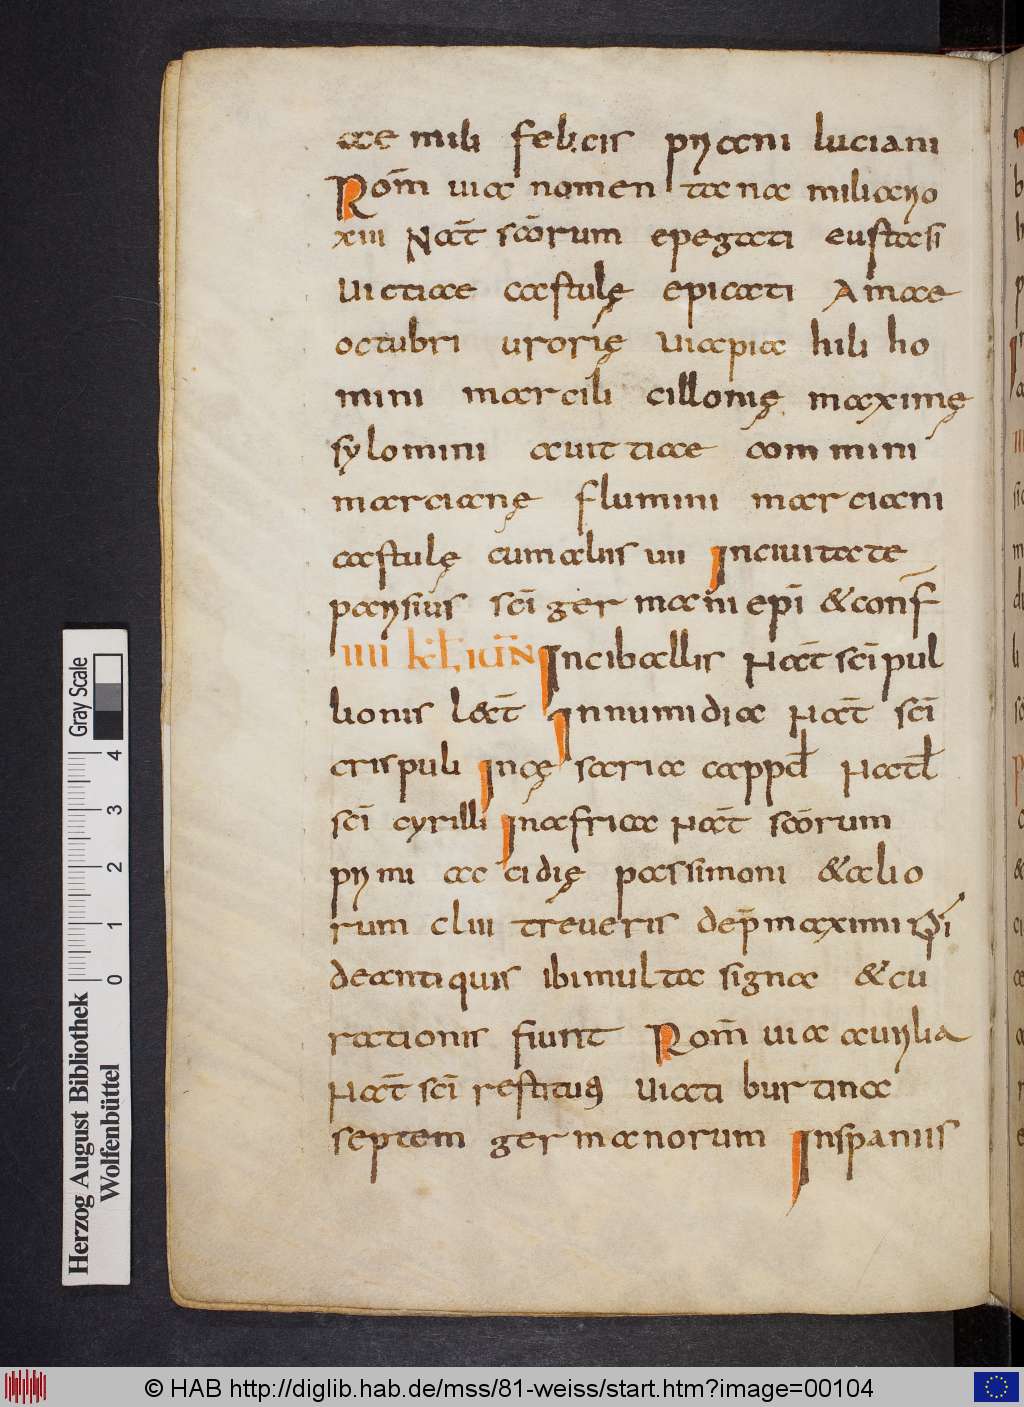 ace mili felicis priscani luciani
Rom̄ uia nomen tana miliario
xiii Nat̄ scōrum epegati eustasi
Victiae castulę epicati Amae
octubri urorię Uiapia hili ho
mini marcili cillonię maximę
sylomini auit tiae commini
marcianę flumini marciani
castulę cum aliis uii Inciuitate
parisius scī ger mani epī & conf̄
iiii kl iūn Incibellis Nat̄ scī pul
lionis lect̄ Innumidia Nat̄ scī
crispuli Incę saria cappd̄ Natl̄
scī cyrilli Inafrica Nat̄ scōrum
primi ac cidię passimoni & alio
rum cliii treueris dep̄ maximini epī
deantiquis ibi multa signa & cu
rationis fiunt Rom̄ uia aurilia
Nat̄ scī restituti Uiati burtina
septem germanorum Inspaniis
Herzog August Bibliothek
Wolfenbüttel
0 1 2 3 4
Gray Scale
© HAB http://diglib.hab.de/mss/81-weiss/start.htm?image=00104